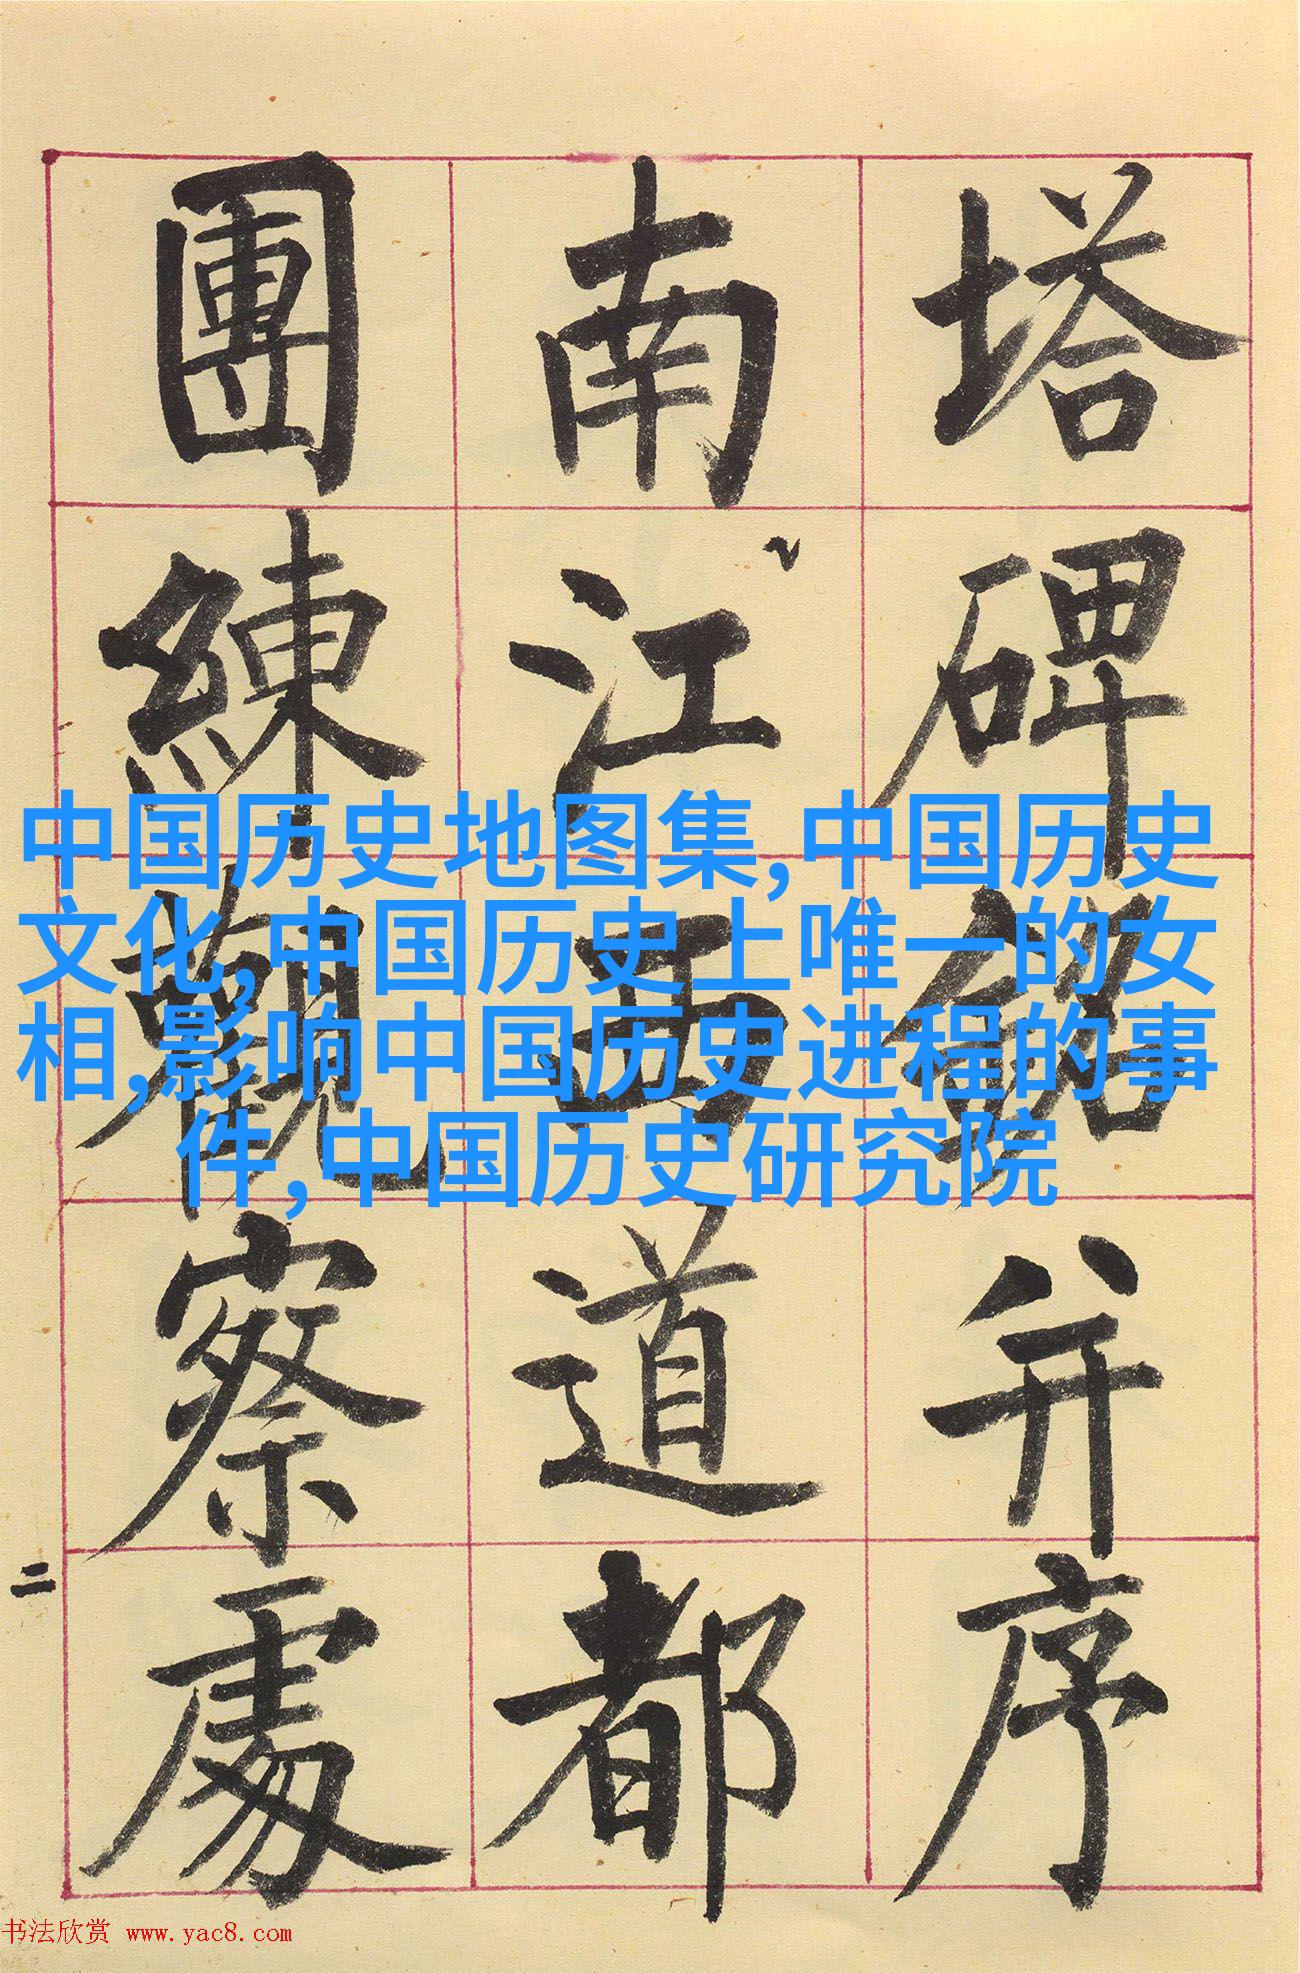 塔碑銘并序
南江西道都
團練觀察處
二
中国历史地图集,中国历史
文化,中国历史上唯一的女
相,影响中国历史进程的事
件,中国历史研究院
书法欣赏 www.yac8.com